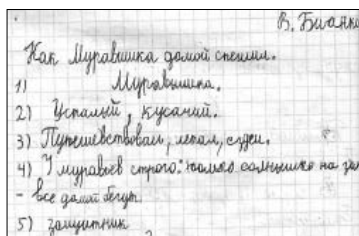 В. Бианки
Как Муравьишка домой спешил.
1) Муравьишка.
2) Усталый, кусачий.
3) Путешествовал, летал, ездил.
4) У муравьёв строго: только солнышко на за
- все домой бегут.
5) защитник